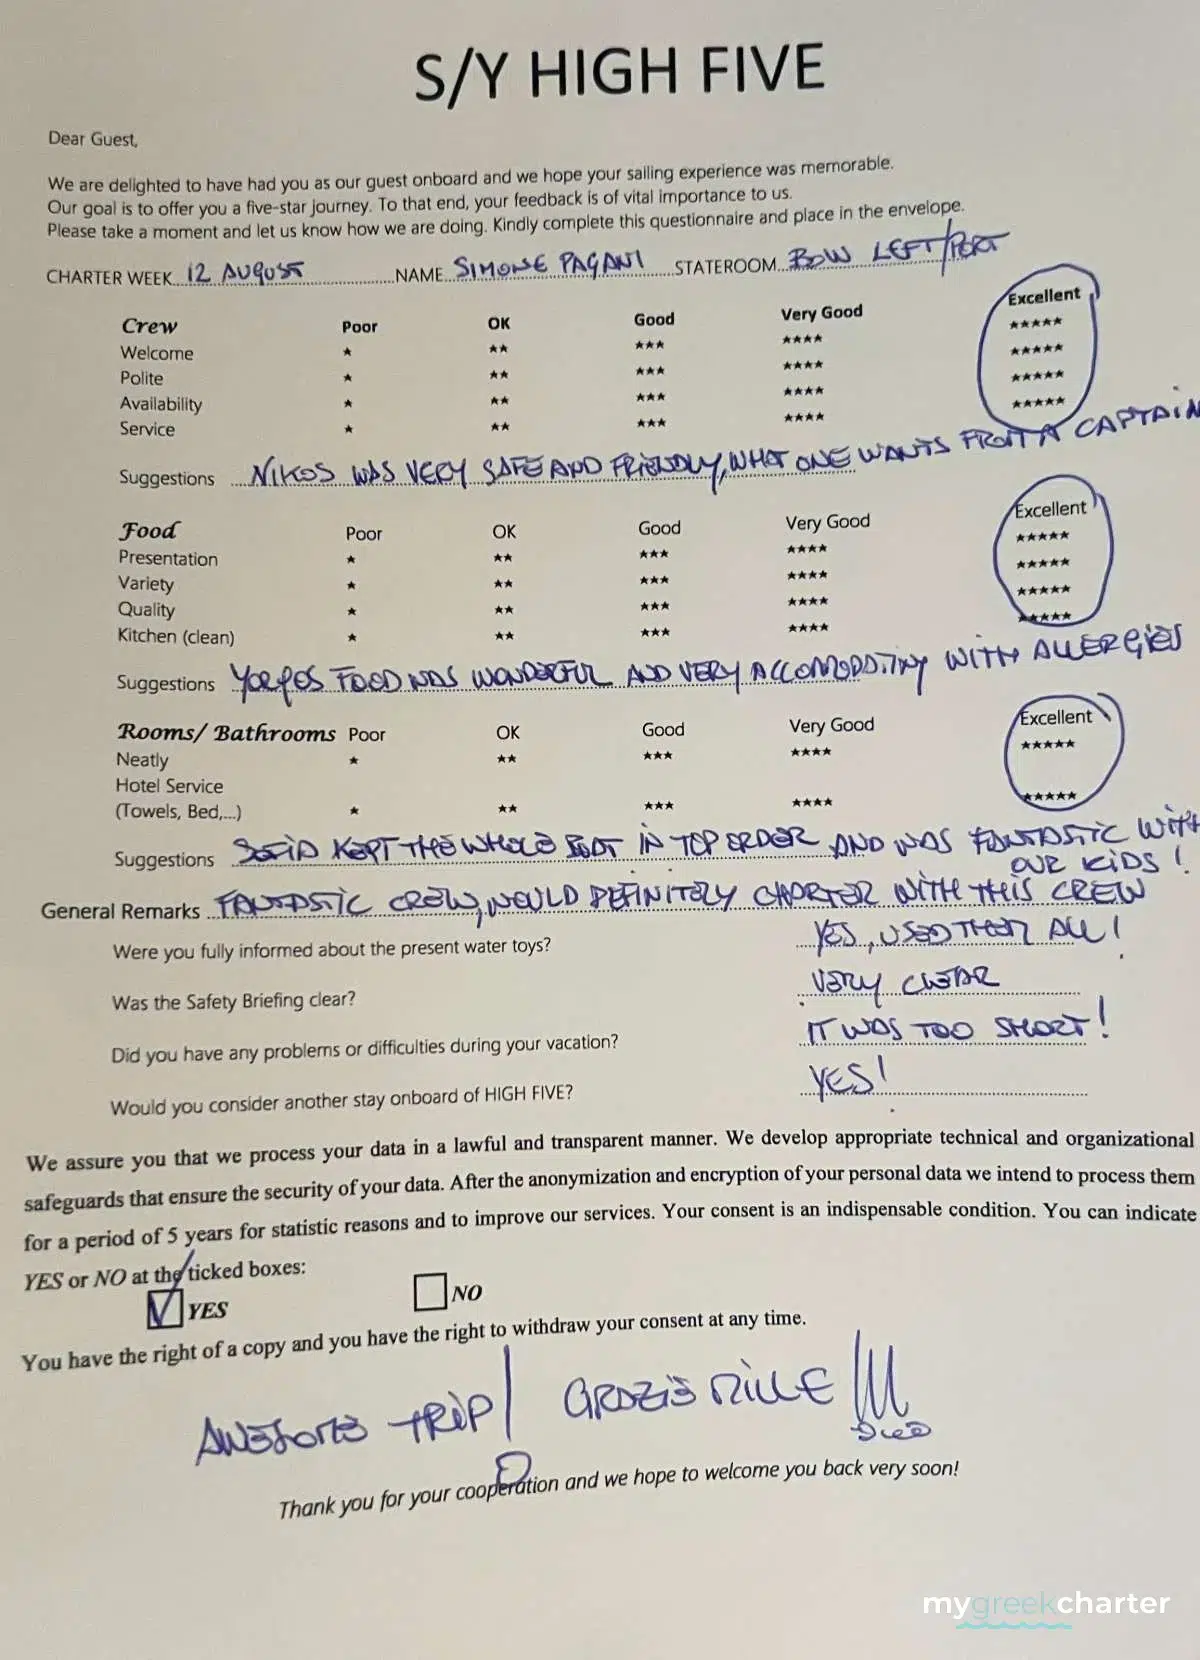 S/Y HIGH FIVE
Dear Guest,
We are delighted to have had you as our guest onboard and we hope your sailing experience was memorable.
Our goal is to offer you a five-star journey. To that end, your feedback is of vital importance to us.
Please take a moment and let us know how we are doing. Kindly complete this questionnaire and place in the envelope.
CHARTER WEEK 12 AUGUST NAME SIMONE PAGANI STATEROOM BOW LEFT/PORT
Crew Poor OK Good Very Good Excellent
Welcome ★ ★★ ★★★ ★★★★ ★★★★★
Polite ★ ★★ ★★★ ★★★★ ★★★★★
Availability ★ ★★ ★★★ ★★★★ ★★★★★
Service ★ ★★ ★★★ ★★★★ ★★★★★
Suggestions NIKOS WAS VERY SAFE AND FRIENDLY, WHAT ONE WANTS FROM A CAPTAIN
Food Poor OK Good Very Good Excellent
Presentation ★ ★★ ★★★ ★★★★ ★★★★★
Variety ★ ★★ ★★★ ★★★★ ★★★★★
Quality ★ ★★ ★★★ ★★★★ ★★★★★
Kitchen (clean) ★ ★★ ★★★ ★★★★ ★★★★★
Suggestions FOOD WAS WONDERFUL AND VERY ACCOMODATING WITH ALLERGIES
Rooms/ Bathrooms Poor OK Good Very Good Excellent
Neatly ★ ★★ ★★★ ★★★★ ★★★★★
Hotel Service
(Towels, Bed,...) ★ ★★ ★★★ ★★★★ ★★★★★
Suggestions SOFIA KEPT THE WHOLE BOAT IN TOP ORDER AND WAS FANTASTIC WITH
OUR KIDS!
General Remarks FANTASTIC CREW, WOULD DEFINITELY CHARTER WITH THIS CREW
Were you fully informed about the present water toys? YES, USED THEM ALL!
Was the Safety Briefing clear? VERY CLEAR
Did you have any problems or difficulties during your vacation? IT WAS TOO SHORT!
Would you consider another stay onboard of HIGH FIVE? YES!
We assure you that we process your data in a lawful and transparent manner. We develop appropriate technical and organizational
safeguards that ensure the security of your data. After the anonymization and encryption of your personal data we intend to process them
for a period of 5 years for statistic reasons and to improve our services. Your consent is an indispensable condition. You can indicate
YES or NO at the ticked boxes:
YES NO
You have the right of a copy and you have the right to withdraw your consent at any time.
AWESOME TRIP! GRAZIE MILLE !!!
Thank you for your cooperation and we hope to welcome you back very soon!
mygreekcharter